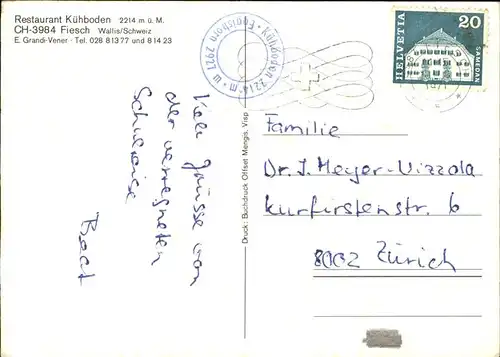 Restaurant Kühboden 2214 m ü. M.
CH-3984 Fiesch Wallis/Schweiz
E. Grand-Vener · Tel. 028 81377 und 81423
Kühboden 2214 m · Eggishorn 2927 m
HELVETIA
20
SAMEDAN
1971
Viele Grüsse von
der verregneten
Schulreise
Beat
Druck: Buchdruck Offset Mengis, Visp
Familie
Dr. J. Meyer-Vizzola
Kurfirstenstr. 6
8002 Zürich